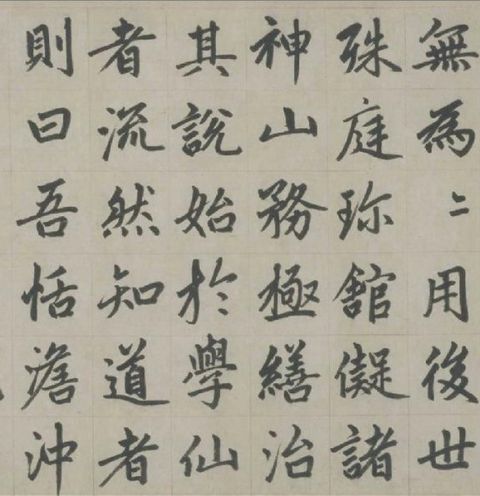 無為〻用後世
殊庭珎舘儗諸
神山務極繕治
其說始於學仙
者流然知道者
則曰吾恬澹沖